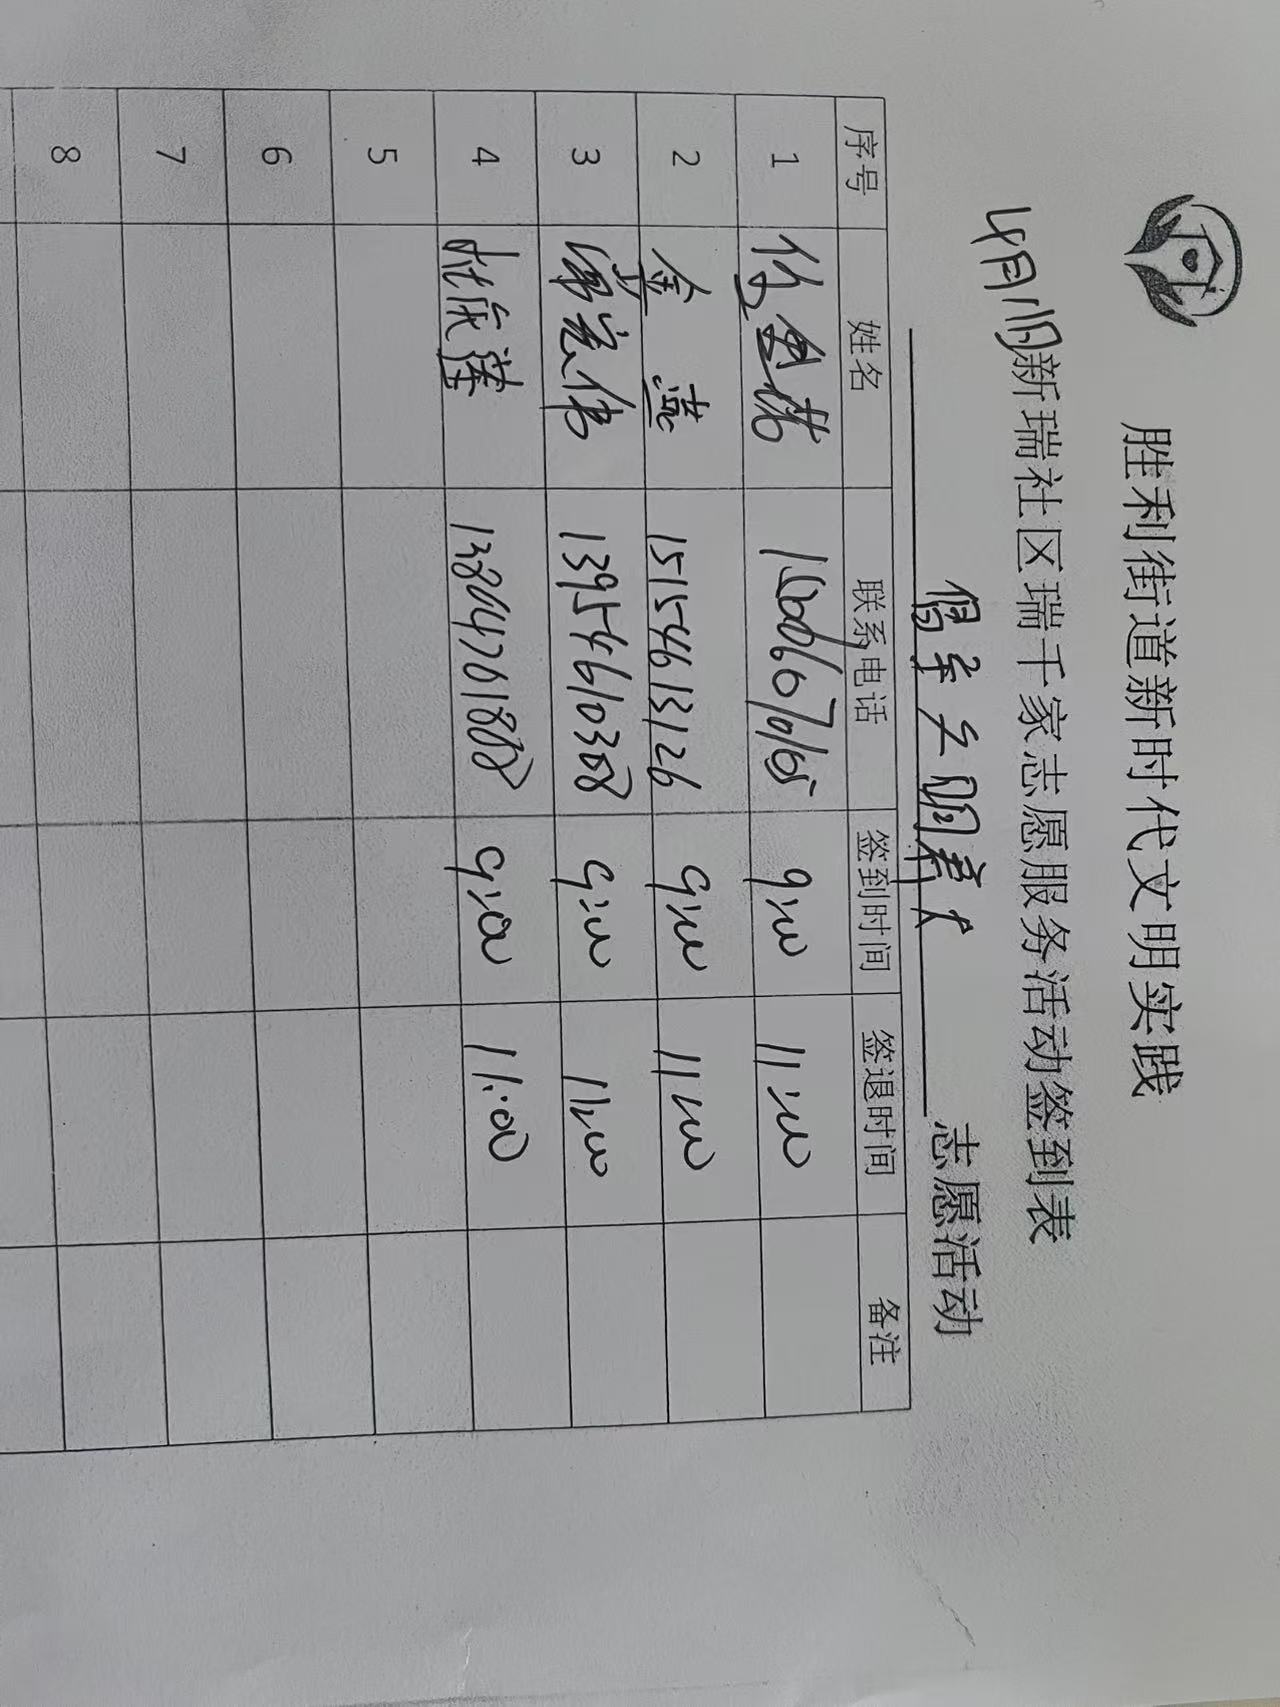 胜利街道新时代文明实践
4月11日新瑞社区瑞千家志愿服务活动签到表
倡导文明养犬志愿活动
序号 姓名 联系电话 签到时间 签退时间 备注
1 9:00 11:00
2 金燕 15154613126 9:00 11:00
3 13954610308 9:00 11:00
4 9:00 11:00
5
6
7
8